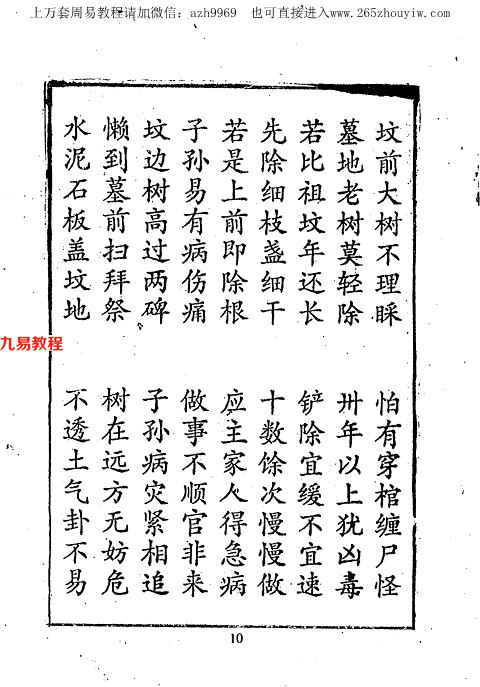 上万套周易教程请加微信：azh9969 也可直接进入www.265zhouyiw.com
坟前大树不理睬 怕有穿棺缠尸怪
墓地老树莫轻除 卅年以上犹凶毒
若比祖坟年还长 铲除宜缓不宜速
先除细枝盏细干 十数馀次慢慢做
若是上前即除根 应主家人得急病
子孙易有病伤痛 做事不顺官非来
坟边树高过两碑 子孙病灾紧相追
懒到墓前扫拜祭 树在远方无妨危
水泥石板盖坟地 不透土气卦不易
九易教程
10